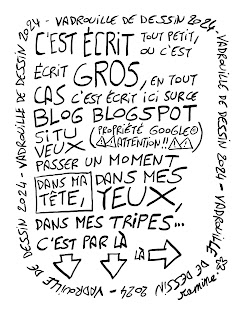 VADROUILLE DE DESSIN 2024 - VADROUILLE DE DESSIN 2024 - VADROUILLE DE DESSIN 2024 - VADROUILLE DE DESSIN 2024 - VADROUILLE DE DESSIN 2024 -
C'EST ÉCRIT TOUT PETIT,
OU C'EST
ÉCRIT GROS, EN TOUT
CAS C'EST ÉCRIT ICI SUR CE
BLOG BLOGSPOT
SI TU (PROPRIÉTÉ GOOGLE®
VEUX ⚠⚠ATTENTION!!⚠⚠)
PASSER UN MOMENT
DANS MA DANS MES
TÊTE, YEUX,
DANS MES TRIPES...
C'EST PAR LÀ
LÀ